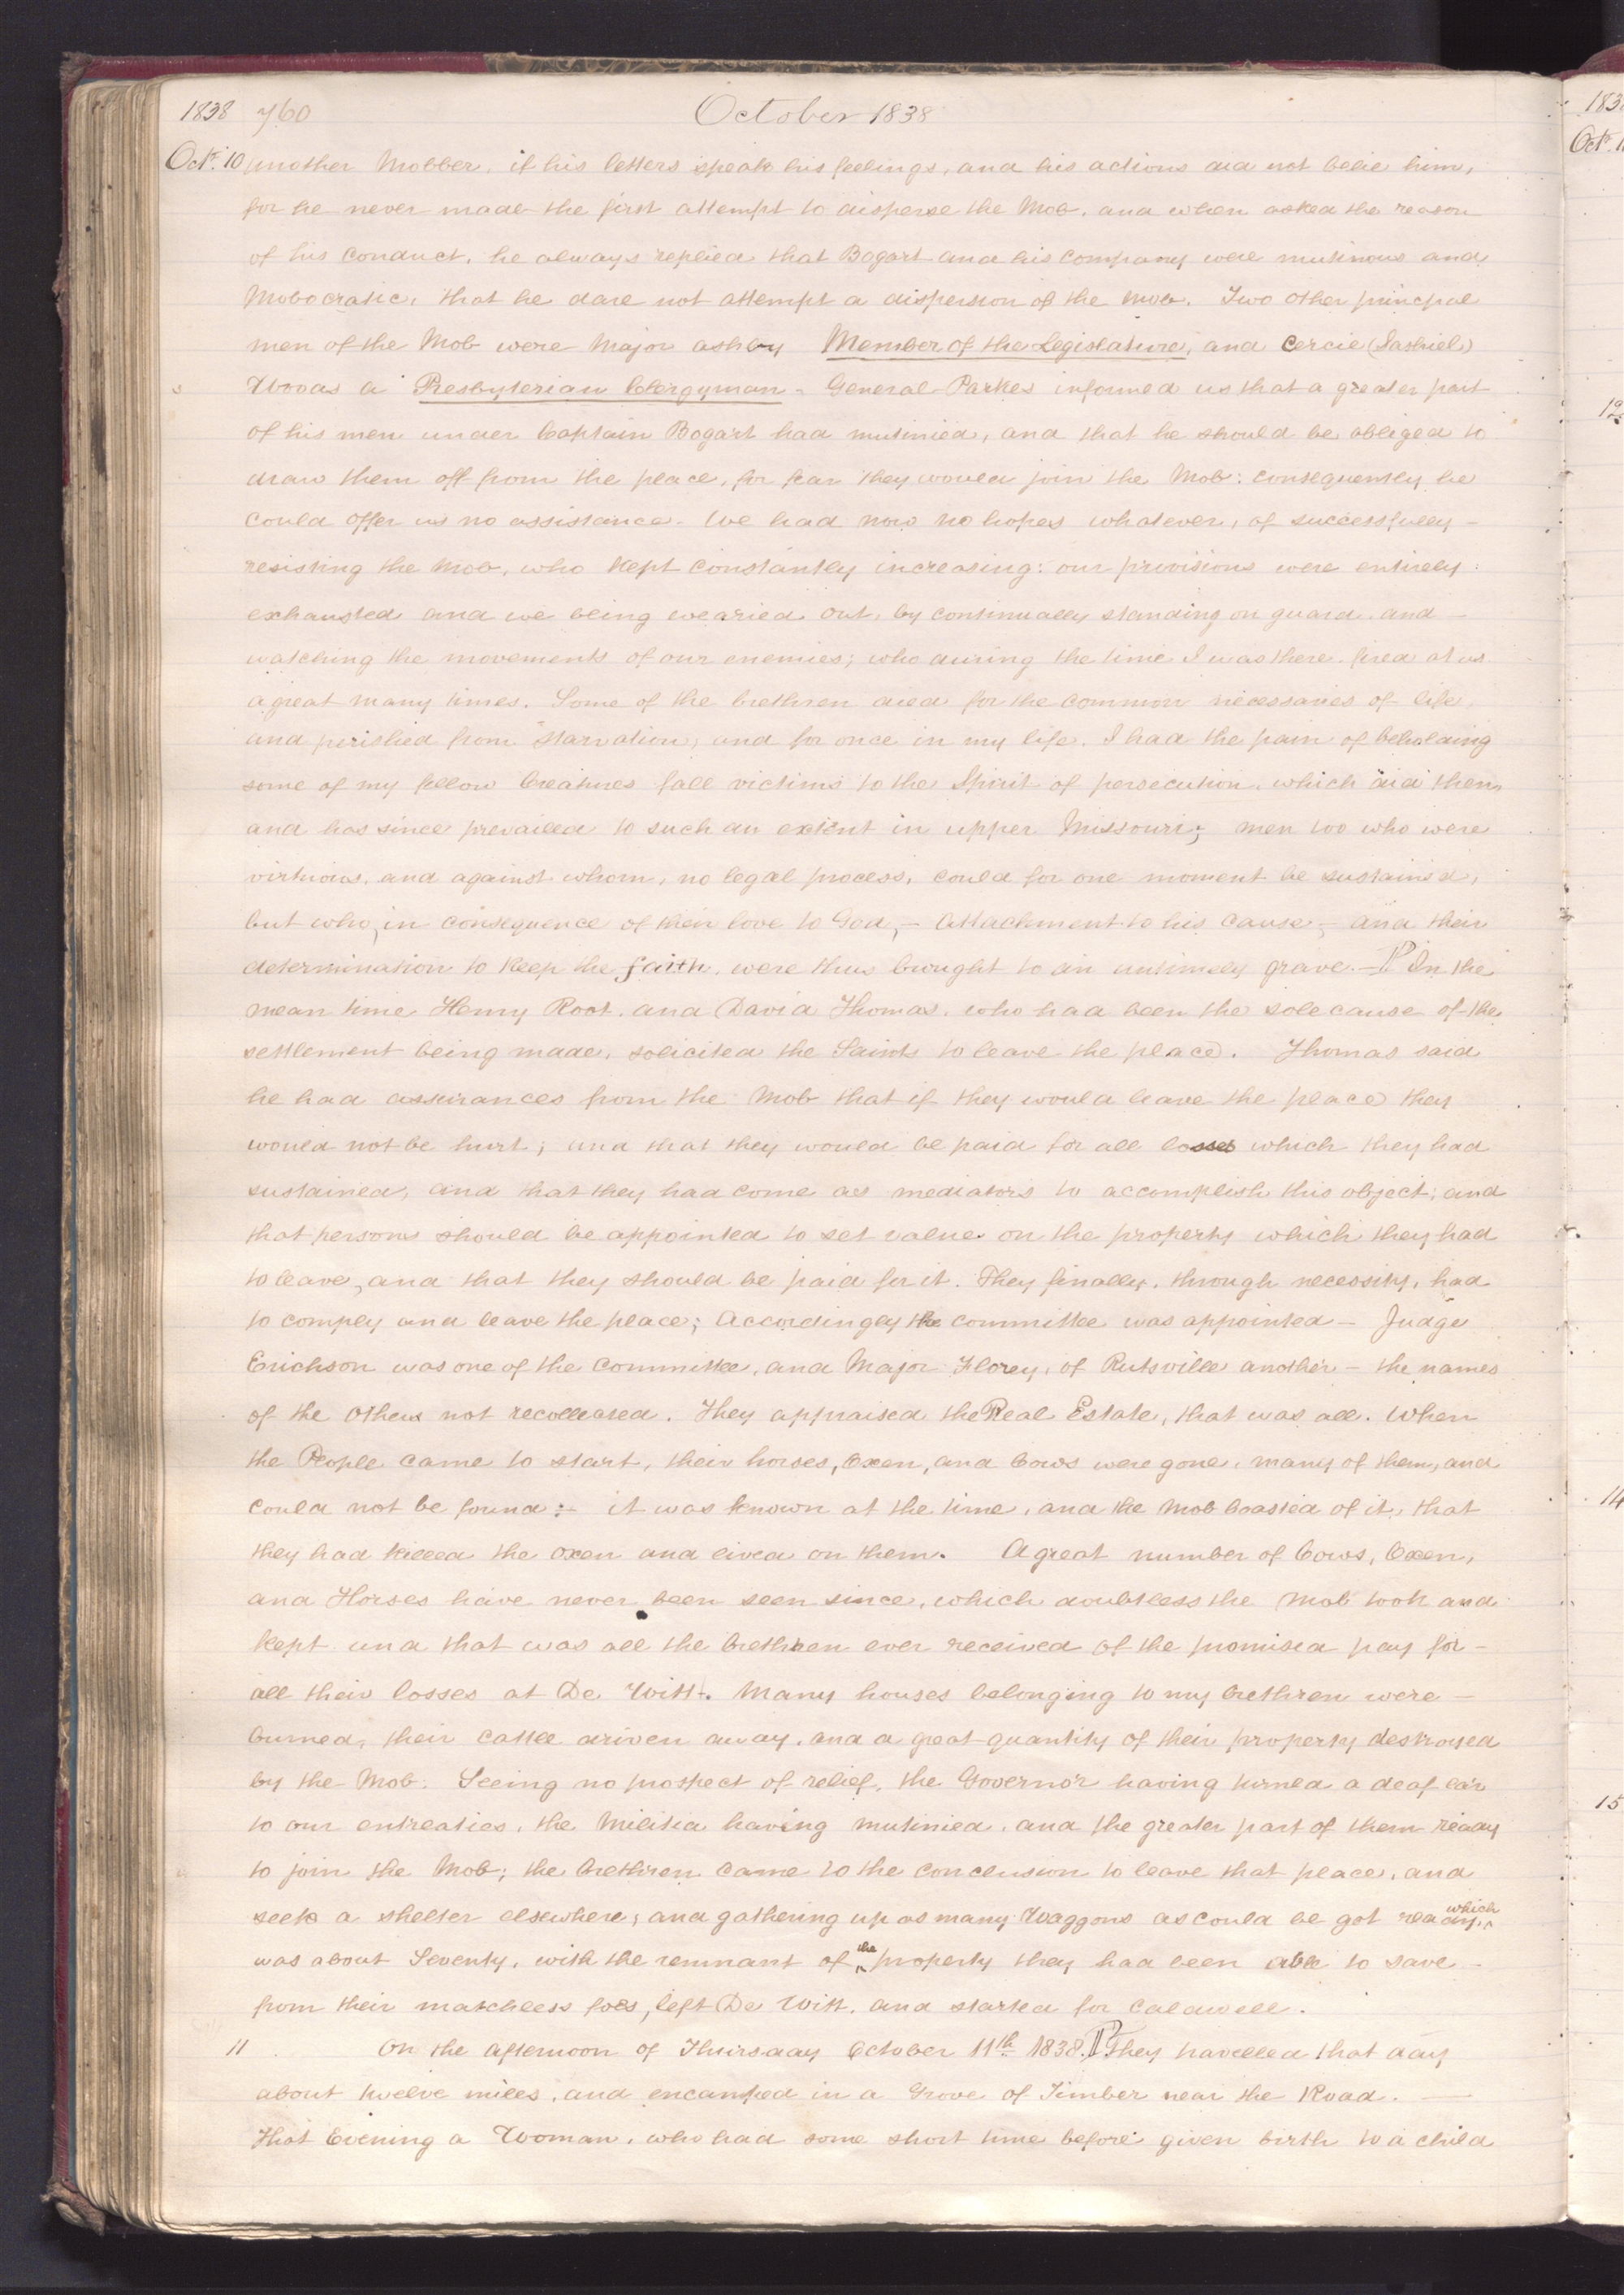 1838 760 October 1838
Oct. 10 another Mobber, if his letters speak his feelings, and his actions did not belie him,
for he never made the first attempt to disperse the Mob, and when asked the reason
of his conduct, he always replied that Bogart and his company were mutinous and
Mobocratic, that he dare not attempt a dispersion of the Mob. Two other principal
men of the Mob were Major Ashby Member of the Legislature, and Cercie (Sashiel)
Woods a Presbyterian Clergyman - General Parkes informed us that a greater part
of his men under Captain Bogart had mutinied, and that he should be obliged to
draw them off from the place, for fear they would join the Mob: consequently he
could offer us no assistance. We had now no hopes whatever, of successfully -
resisting the Mob, who kept constantly increasing: our provisions were entirely
exhausted and we being wearied out, by continually standing on guard, and -
watching the movements of our enemies; who during the time I was there, fired at us
a great many times. Some of the brethren died for the common necessaries of life,
and perished from starvation, and for once in my life, I had the pain of beholding
some of my fellow creatures fall victims to the Spirit of persecution, which did then
and has since prevailed to such an extent in upper Missouri; men too who were
virtuous, and against whom, no legal process, could for one moment be sustained,
but who, in consequence of their love to God, - attachment to his cause, - and their
determination to keep the faith, were thus brought to an untimely grave. - P In the
mean time Henry Root, and David Thomas, who had been the sole cause of the
settlement being made, solicited the Saints to leave the place. Thomas said
he had assurances from the Mob that if they would leave the place they
would not be hurt; and that they would be paid for all losses which they had
sustained, and that they had come as mediators to accomplish this object; and
that persons should be appointed to set value on the property which they had
to leave, and that they should be paid for it. They finally, through necessity, had
to comply and leave the place; Accordingly the committee was appointed - Judge
Erichson was one of the Committee, and Major Florey, of Rutsville another - the names
of the others not recollected. They appraised the Real Estate, that was all. When
the People came to start, their horses, Oxen, and Cows were gone, many of them, and
could not be found: - it was known at the time, and the Mob boasted of it, that
they had killed the oxen and lived on them. A great number of Cows, Oxen,
and Horses have never been seen since, which doubtless the Mob took and
kept and that was all the brethren ever received of the promised pay for -
all their losses at De Witt. Many houses belonging to my brethren were -
burned, their cattle driven away, and a great quantity of their property destroyed
by the Mob. Seeing no prospect of relief, the Governor having turned a deaf ear
to our entreaties, the Militia having mutinied, and the greater part of them ready
to join the Mob; the brethren came to the conclusion to leave that place, and
seek a shelter elsewhere; and gathering up as many Waggons as could be got ready, which
was about Seventy, with the remnant of the property they had been able to save -
from their matchless foes, left De Witt, and started for Caldwell.
11 On the afternoon of Thursday October 11th. 1838. P They travelled that day
about twelve miles, and encamped in a Grove of Timber near the Road. -
That Evening a Woman, who had some short time before given birth to a child
183
Oct. 1
12
14
15